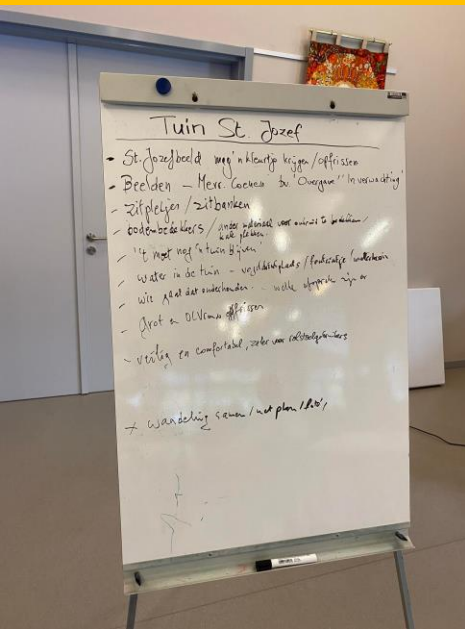 Tuin St. Jozef
- St. Jozefbeeld mag 'n kleurtje krijgen / opfrissen
- Beelden - Mevr. Coenen bv 'Overgave' 'In verwachting'
- zitplekjes / zitbanken
- bodembedekkers / ander materiaal voor onkruid te bedekken /
kale plekken
- 't moet nog 'n tuin blijven'
- water in de tuin -
- wie gaat dat onderhouden - welke afspraken zijn er
- Grot en OLVrouw opfrissen
- veilig en comfortabel, zeker voor rolstoelgebruikers
+ wandeling samen / met plan /